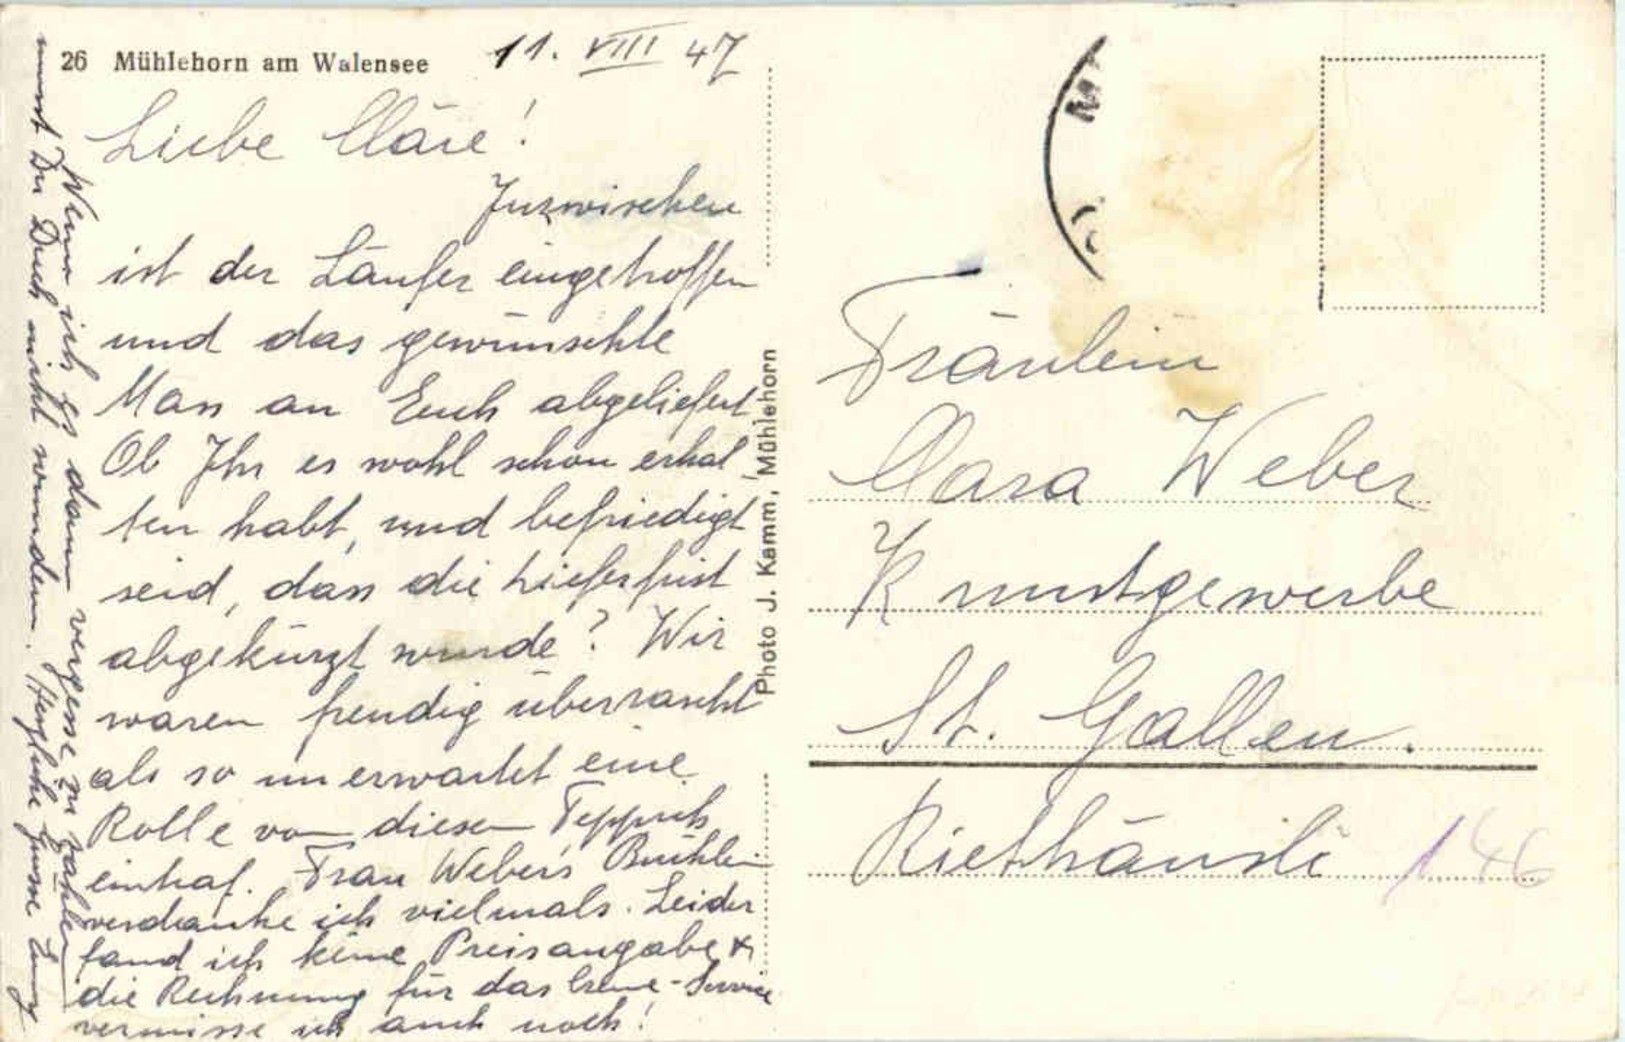 26 Mühlehorn am Walensee
11. VIII 47
Liebe Cläre!
Inzwischen
ist der Läufer eingetroffen
und das gewünschte
Mass an Euch abgeliefert
Ob Ihr es wohl schon erhal
ten habt, und befriedigt
seid, dass die Lieferfrist
abgekürzt wurde? Wir
waren freudig überrascht
als so unerwartet eine
Rolle von diesem Teppich
eintraf. Frau Weber's Büchlein
verdanke ich vielmals. Leider
fand ich keine Preisangabe &
die Rechnung für das Creme-Service
vermisse ich auch noch!
Wenn ich es dann vergesse zu zahlen
musst Du Dich nicht wundern. Herzliche Grüsse
Photo J. Kamm, Mühlehorn
Fräulein
Clara Weber
Kunstgewerbe
St. Gallen.
Riethäusli 146